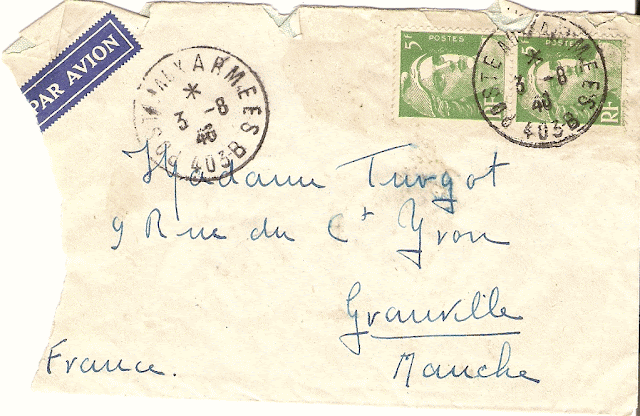 PAR AVION
POSTE AUX ARMEES
* 3 -8
48
403B
5F POSTES
RF
POSTE AUX ARMEES
* 3 -8
48
403B
Madame Turgot
9 Rue du Ct Yvon
Granville
Manche
France.